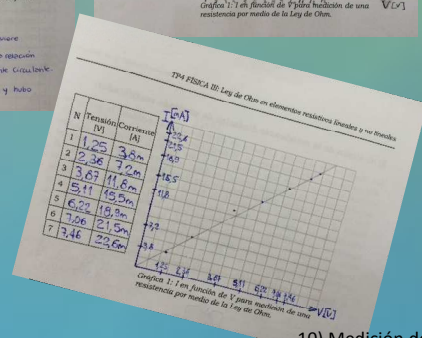 Gráfica 1: I en función de V para medición de una
resistencia por medio de la Ley de Ohm.
V[v]
relación
te circulante.
y hubo
TP4 FÍSICA III: Ley de Ohm en elementos resistivos lineales y no lineales
N Tensión [V] Corriente [A]
1 1,25 3,8m
2 2,36 7,2m
3 3,87 11,8m
4 5,11 15,5m
5 6,22 18,9m
6 7,06 21,5m
7 7,46 22,6m
I[mA]
22,6
21,5
18,9
15,5
11,8
7,2
3,8
1,25 2,36 3,87 5,11 6,22 7,06 7,46
V[v]
Gráfica 1: I en función de V para medición de una
resistencia por medio de la Ley de Ohm.
10) Medición d